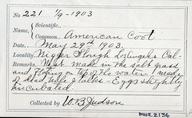 No 221 1/9 1903
Scientific,
Common, American Coot
Date, May 29th 1903.
Locality, Nigger Slough Los Angeles Cal-
Remarks. Nest made in the salt grass,
and floating on top of the water! made
Eggs slightly
incubated.
Collected by W.B. Judson